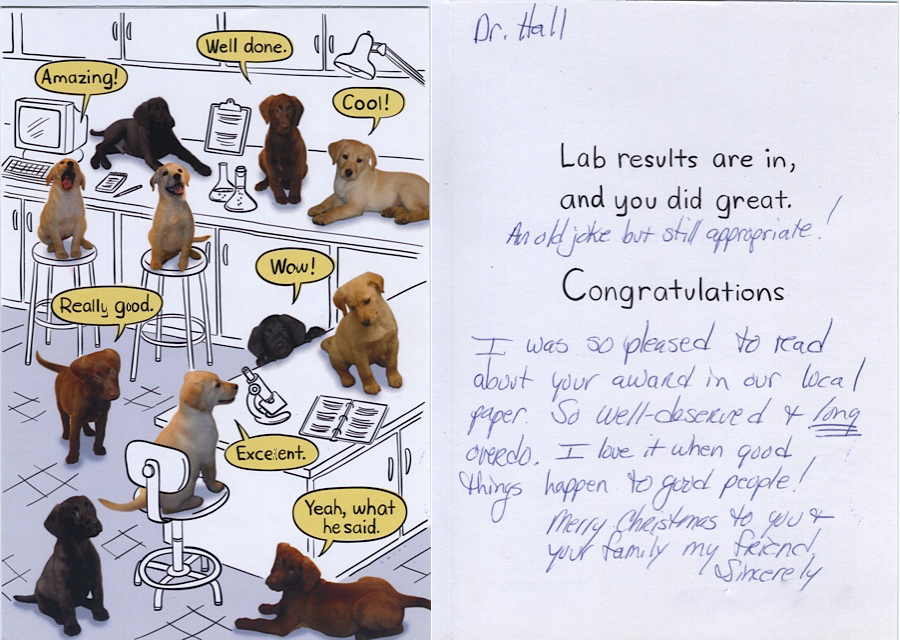 Well done.
Amazing!
Cool!
Wow!
Really good.
Excellent.
Yeah, what
he said.
Dr. Hall
Lab results are in,
and you did great.
An old joke but still appropriate!
Congratulations
I was so pleased to read
about your award in our local
paper. So well-deserved & long
overdo. I love it when good
things happen to good people!
Merry Christmas to you &
your family my friend
Sincerely